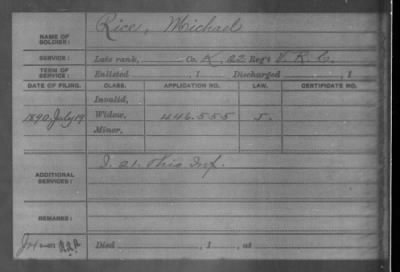 NAME OF SOLDIER: Rice, Michael
SERVICE: Late rank, Co. K, 22 Reg't V. R. C.
TERM OF SERVICE: Enlisted , 1 Discharged , 1
DATE OF FILING. CLASS. APPLICATION NO. LAW. CERTIFICATE NO.
Invalid,
1890, July 19 Widow, 446.555 J.
Minor,
ADDITIONAL SERVICES: I. 21. Ohio Inf.
REMARKS:
Died , 1 , at